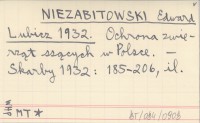 NIEZABITOWSKI Edward
Lubicz 1932. Ochrona zwie-
rząt ssących w Polsce. —
Skarby 1932: 185-206, il.
MT*
BT/084/0908